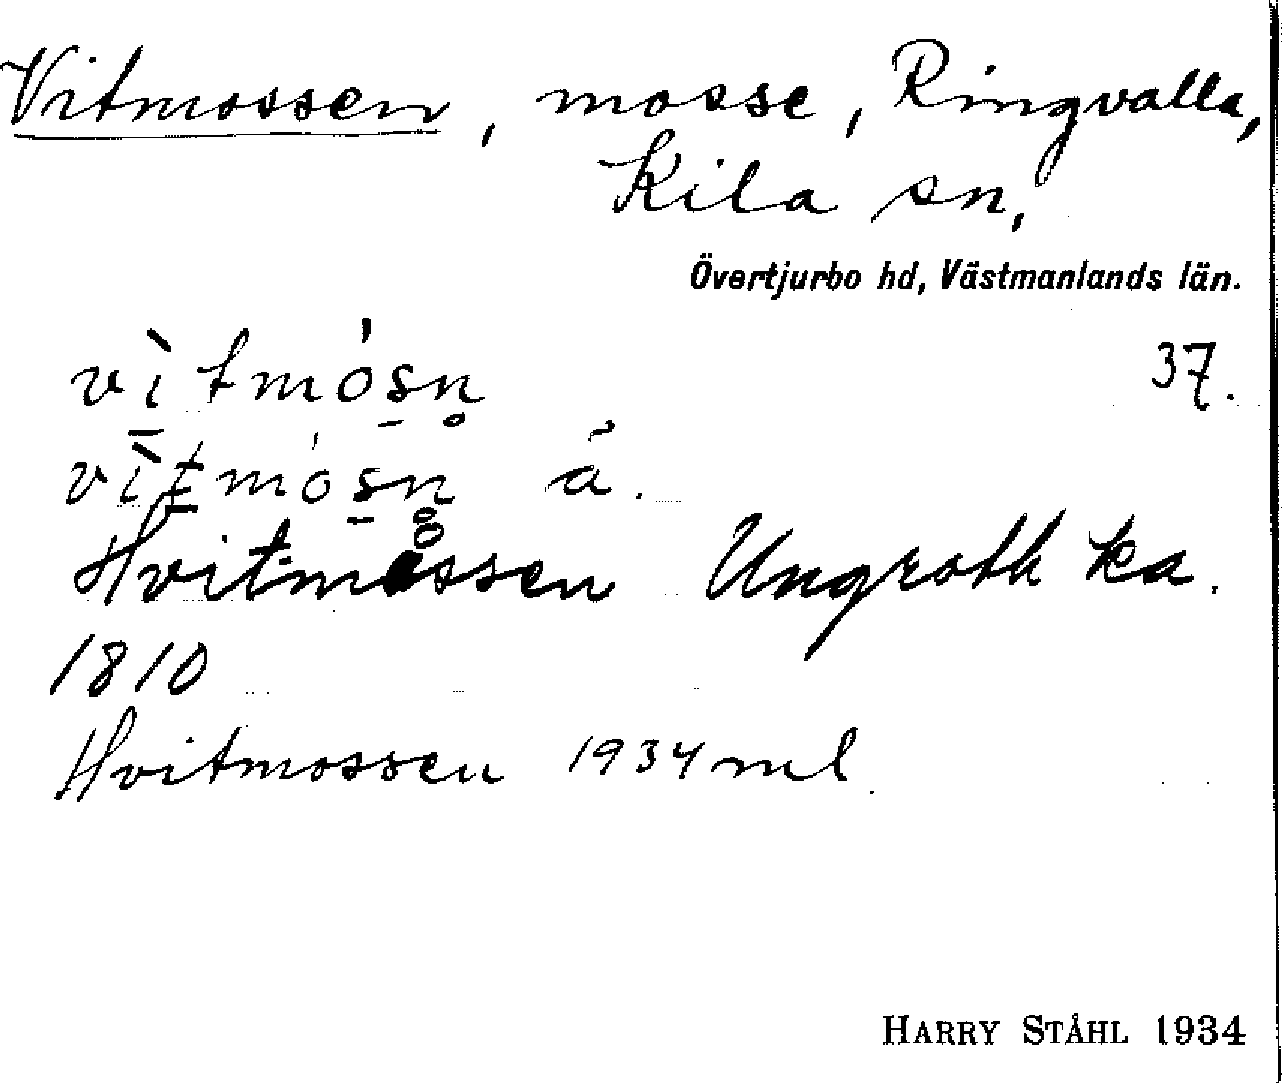 Vitmossen, mosse, Ringvalla,
Kila sn,
Övertjurbo hd, Västmanlands län.
vì̱tmós̠n̥ 37.
vìt̠mós̠n̥ ã.
Hvitmåssen Ungroth ka.
1810
Hvitmossen 1934 ml
HARRY STÅHL 1934